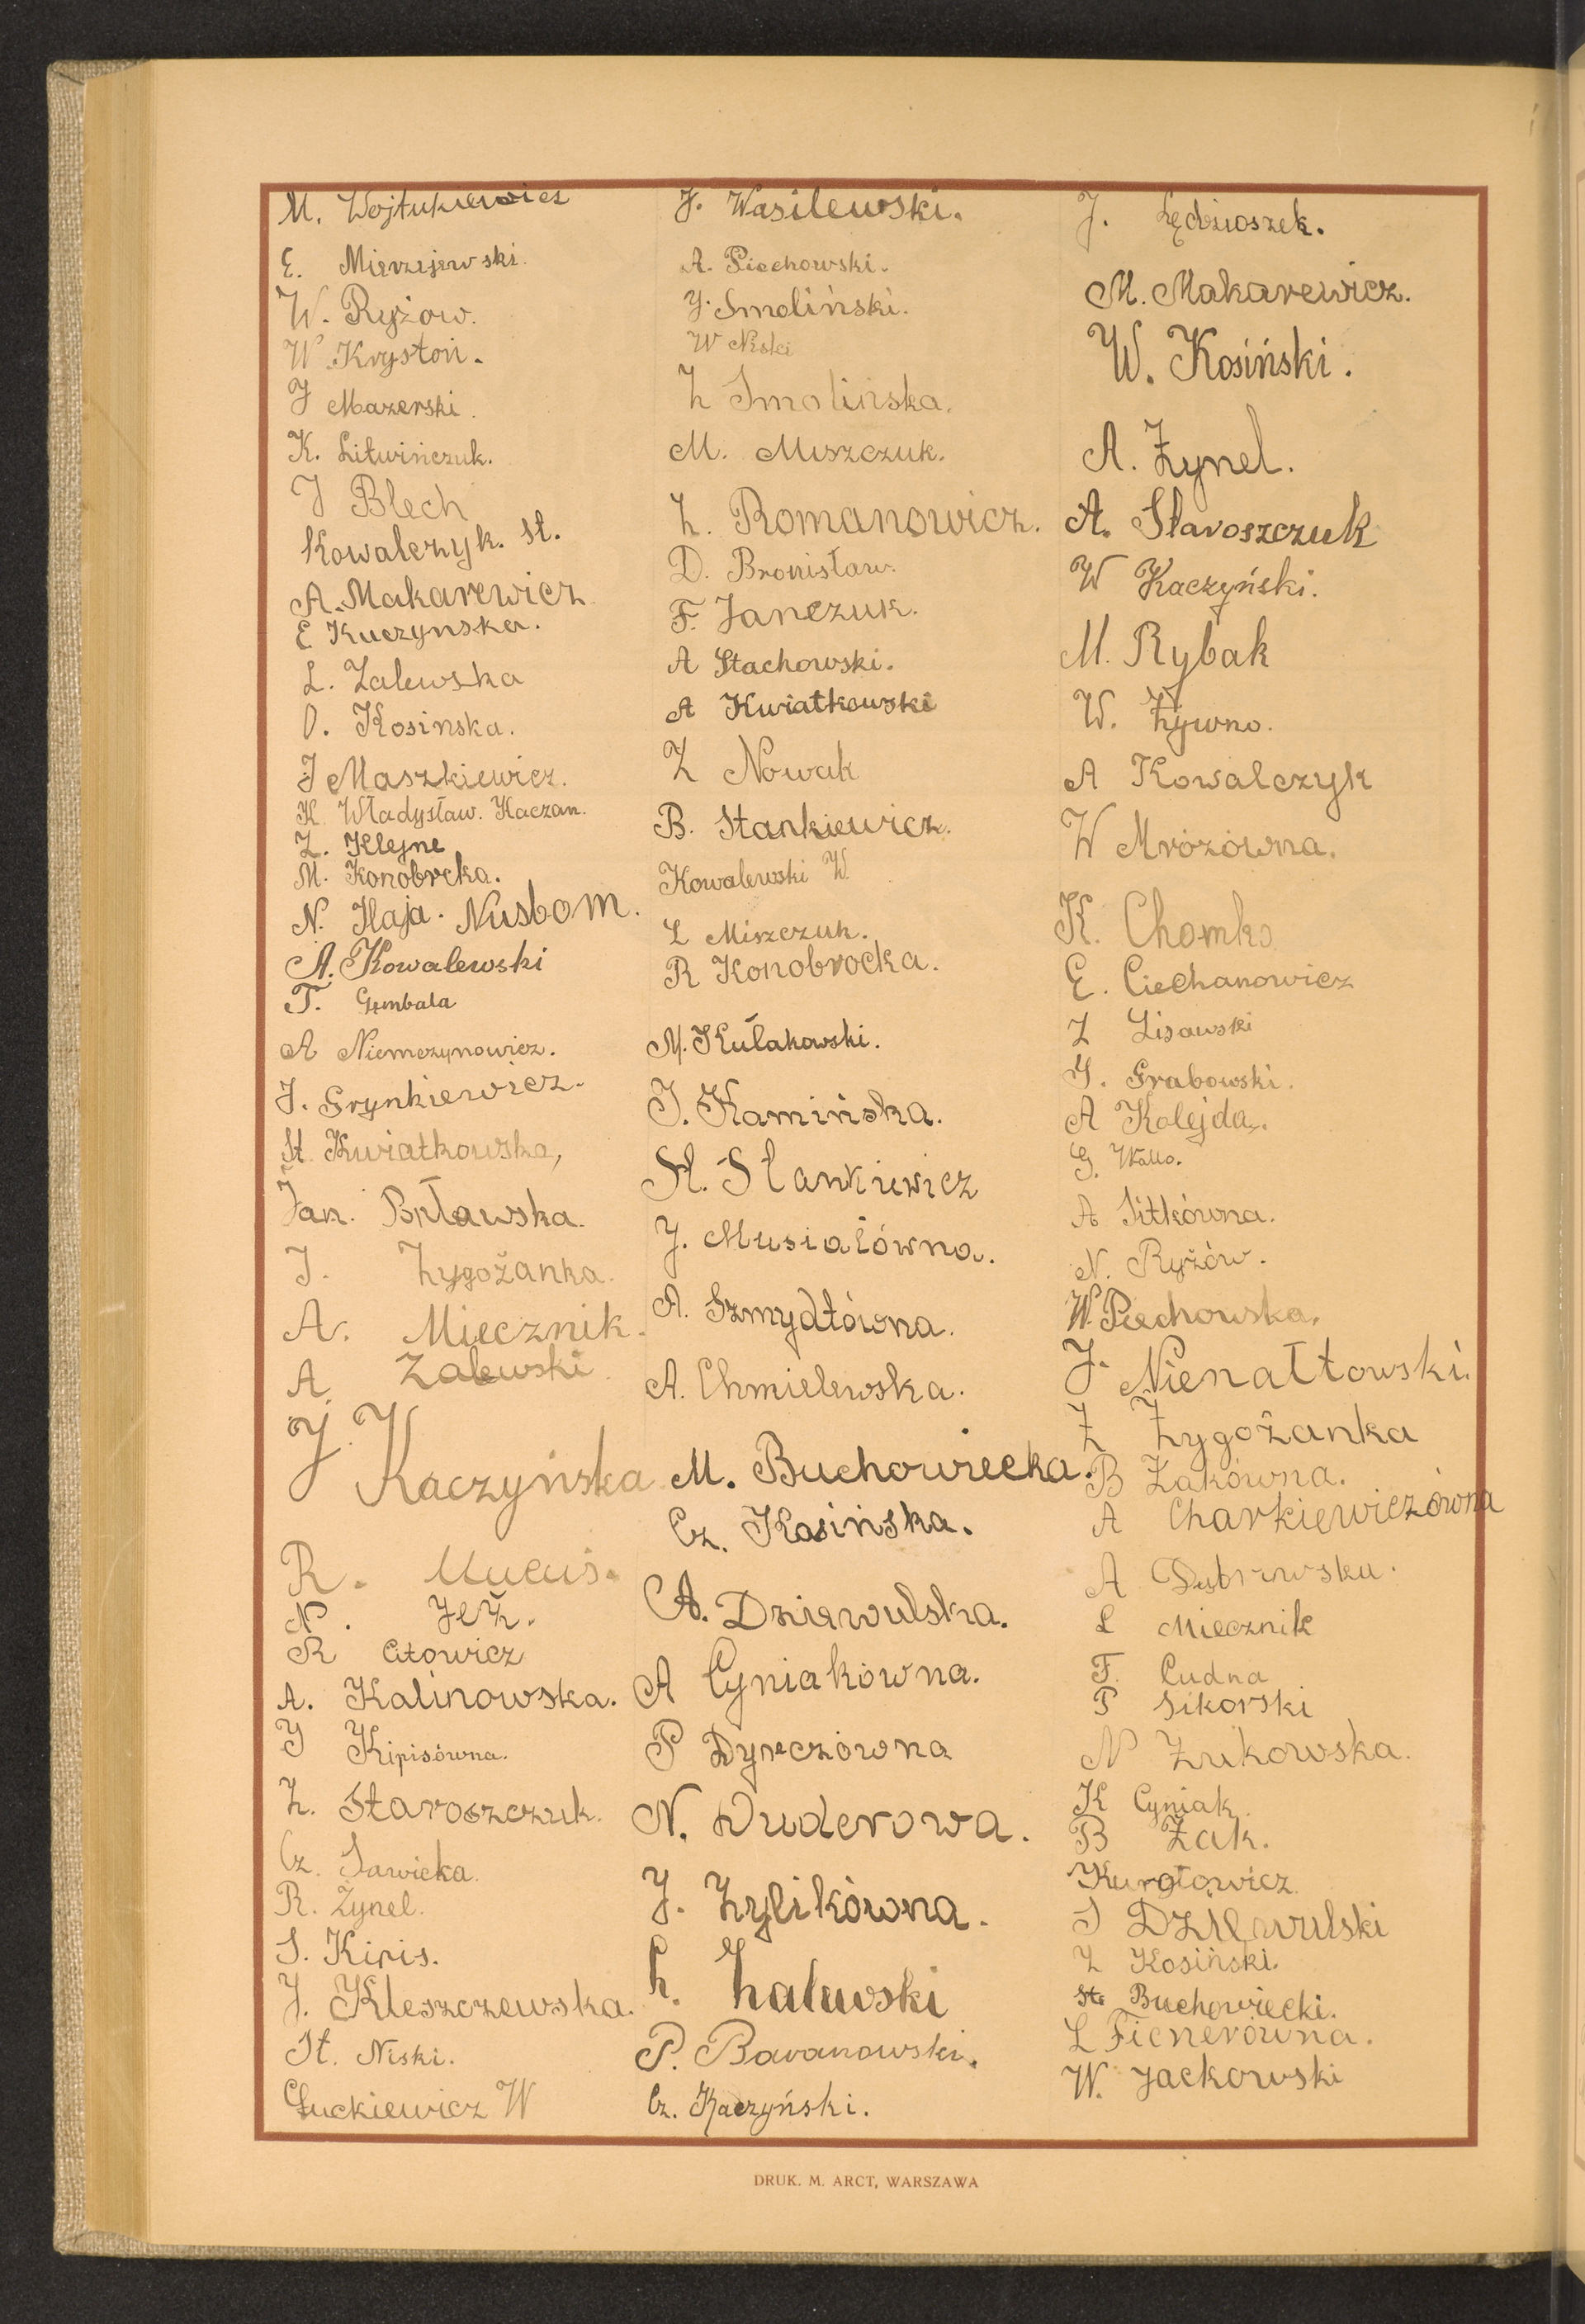 M. Wojtukiewicz
E. Mierzejewski.
W. Ryżow.
W. Krystoń.
J Mazerski.
K. Litwińczuk.
J Blech
Kowalczyk. St.
A. Makarewicz
E Kuczynska.
L. Zalewska
O. Kosinska.
J Maszkiewicz.
K. Władysław. Kaczan.
Z. Klejne
M. Konobrcka.
N. Haja. Nusbom.
A. Kowalewski
T. Gembala
A Niemczynowicz.
J. Grynkiewicz.
St. Kwiatkowska,
Jan. Bełtawska.
J. Zygożanka.
A. Miecznik.
A. Zalewski
J. Kaczyńska
R.
N. Jeż.
R Citowicz
A. Kalinowska.
J Kipisówna.
Z. Staroszczuk.
Cz. Sawicka.
R. Żynel.
S. Kipis.
J. Kleszczewska.
St. Niski.
Łuckiewicz W
J. Wasilewski.
A. Piechowski.
J. Smoliński.
W Niski
Z Smolińska.
M. Miszczuk.
Z. Romanowicz.
D. Bronisław.
F. Janczuk.
A Stachowski.
A Kwiatkowski
Z Nowak
B. Stankiewicz.
Kowalewski W.
L Miszczuk.
R Konobrocka.
M. Kułakowski.
J. Kamińska.
St. Stankiewicz
J. Musiałówna.
A. Szmydtówna.
A. Chmielewska.
M. Buchowiecka.
Cz. Kosińska.
A. Dziewulska.
A Cyniakówna.
P Dyreczówna
N. Duderowa.
J. Zylikówna.
Z. Zalewski
P. Baranowski.
Cz. Kaczyński.
J. Lędzioszek.
M. Makarewicz.
W. Kosiński.
A. Żynel.
A. Staroszczuk
W Kaczyński.
M. Rybak
W. Żywno.
A Kowalczyk
W Mrozówna.
K. Chomko
E. Ciechanowicz
Z Lisawski
J. Grabowski.
A Kolejda.
G. Wałło.
A Sitkówna.
N. Ryżów.
W. Piechowska.
J. Nienałtowski.
Z Zygożanka
B Żakówna.
A Charkiewiczówna
A
L Miecznik
F. Cudna
P Sikorski
N Żukowska.
K Cyniak.
B Żak.
Kurgłowicz
S Dziewulski
Z Kosiński.
St. Buchowiecki.
L Ficnerówna.
W. Jackowski
DRUK. M. ARCT, WARSZAWA